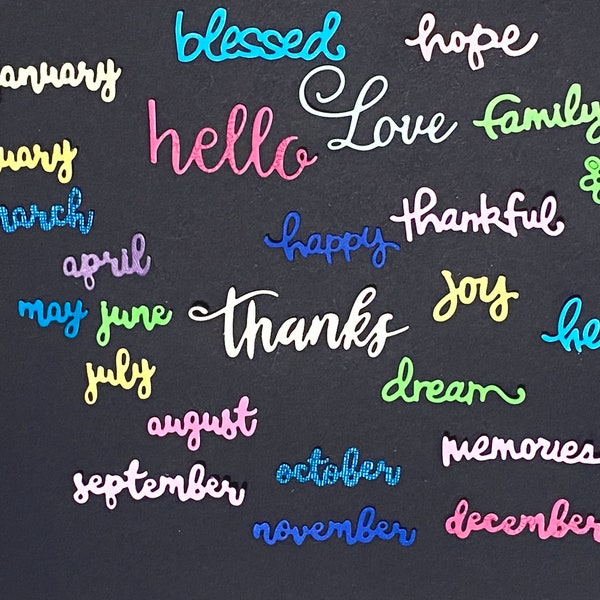 blessed hope
anuary
Love
hello family
uary
march thankful
april happy
joy
may june thanks he
july dream
august
memories
september october
november december